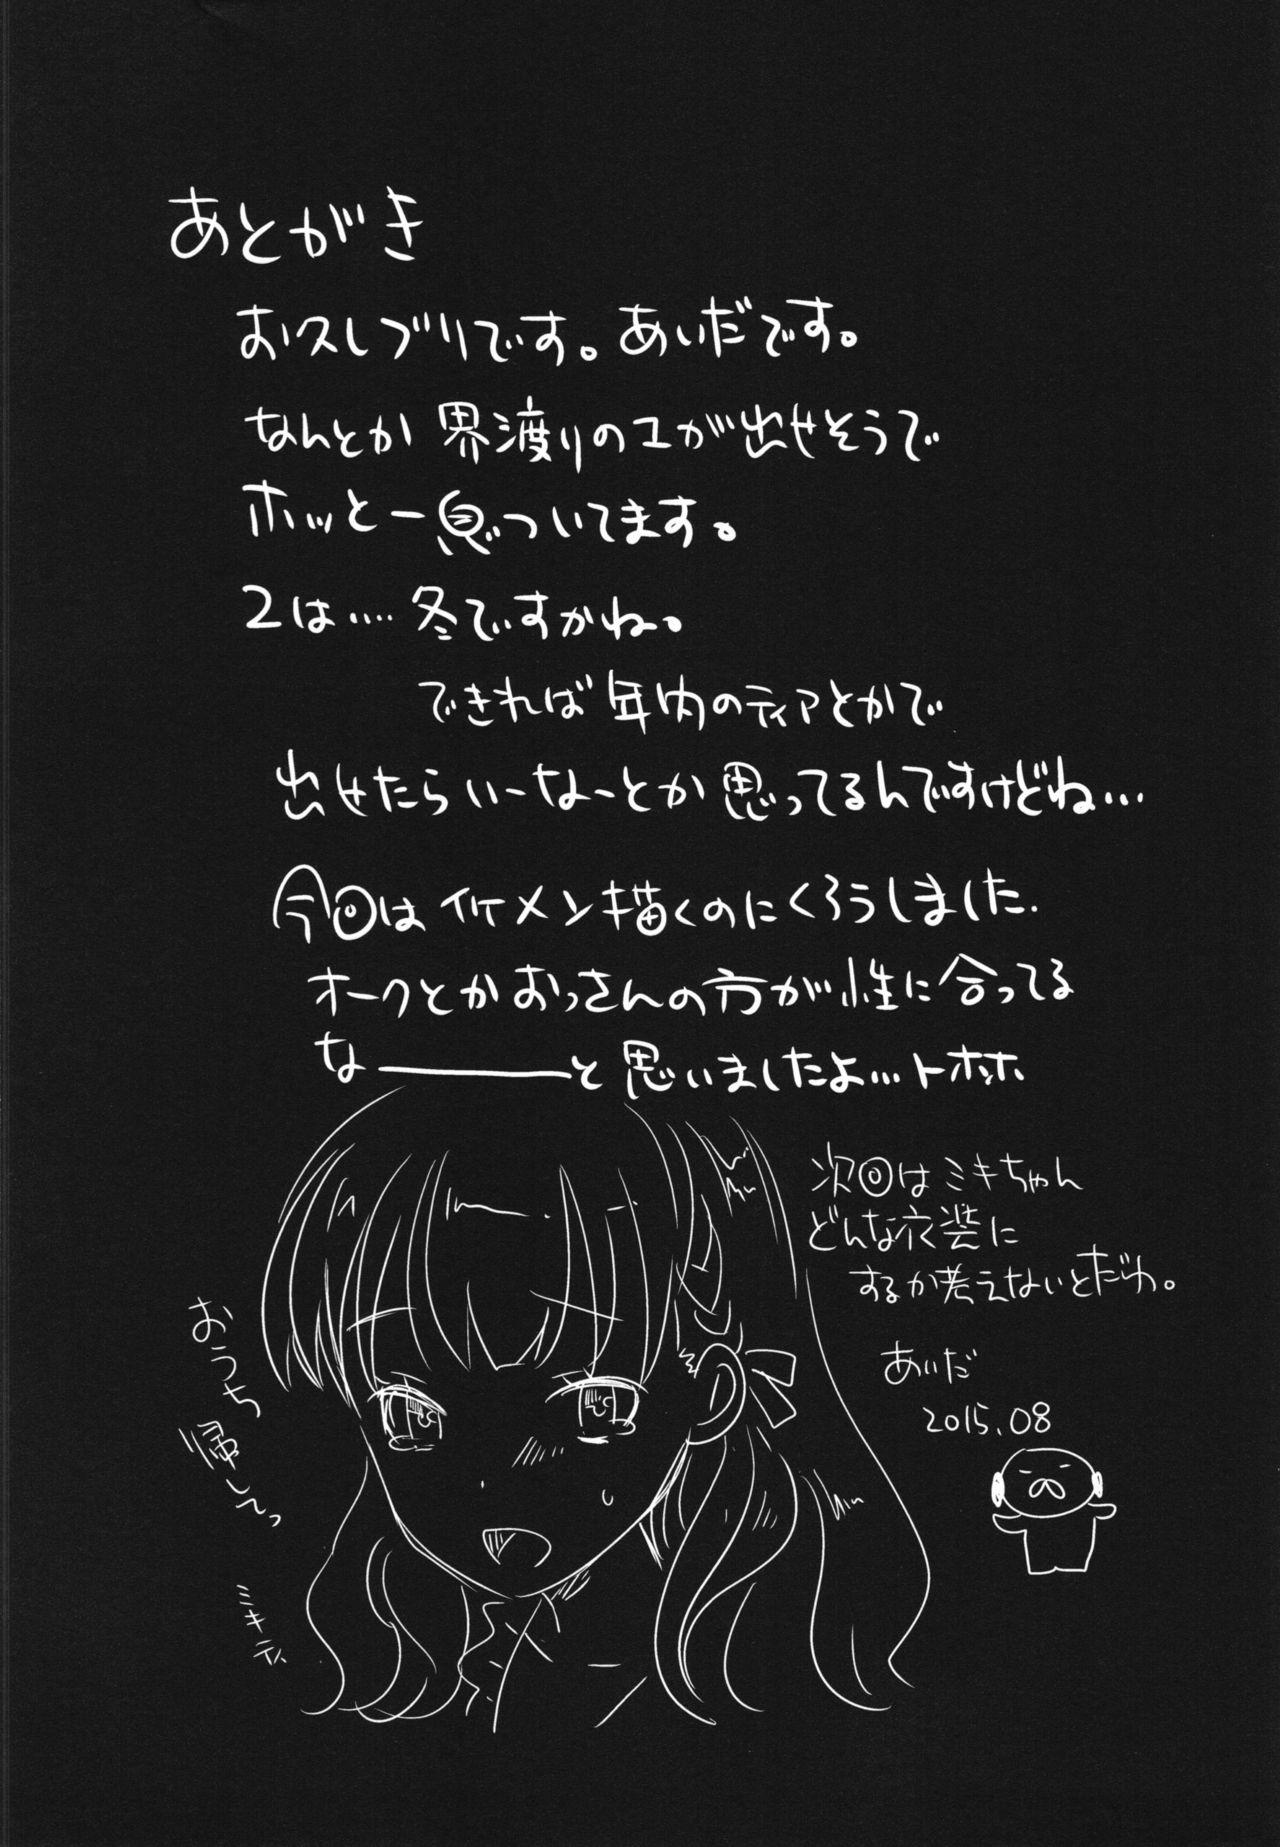 あとがき
お久しブリです。あいだです。
なんとか界渡りの1が出せそうで
ホッと一息ついてます。
2は‥‥冬ですかね。
できれば年内のティアとかで
出せたらいーなーとか思ってるんですけどね…
今回はイケメン描くのにくろうしました.
オークとかおっさんの方が性に合ってる
な———と思いましたよ…トホホ
次回はミキちゃん
どんな衣装に
するか考えないとだわ。
あいだ
2015.08
おうち
帰してっ
ミキティ